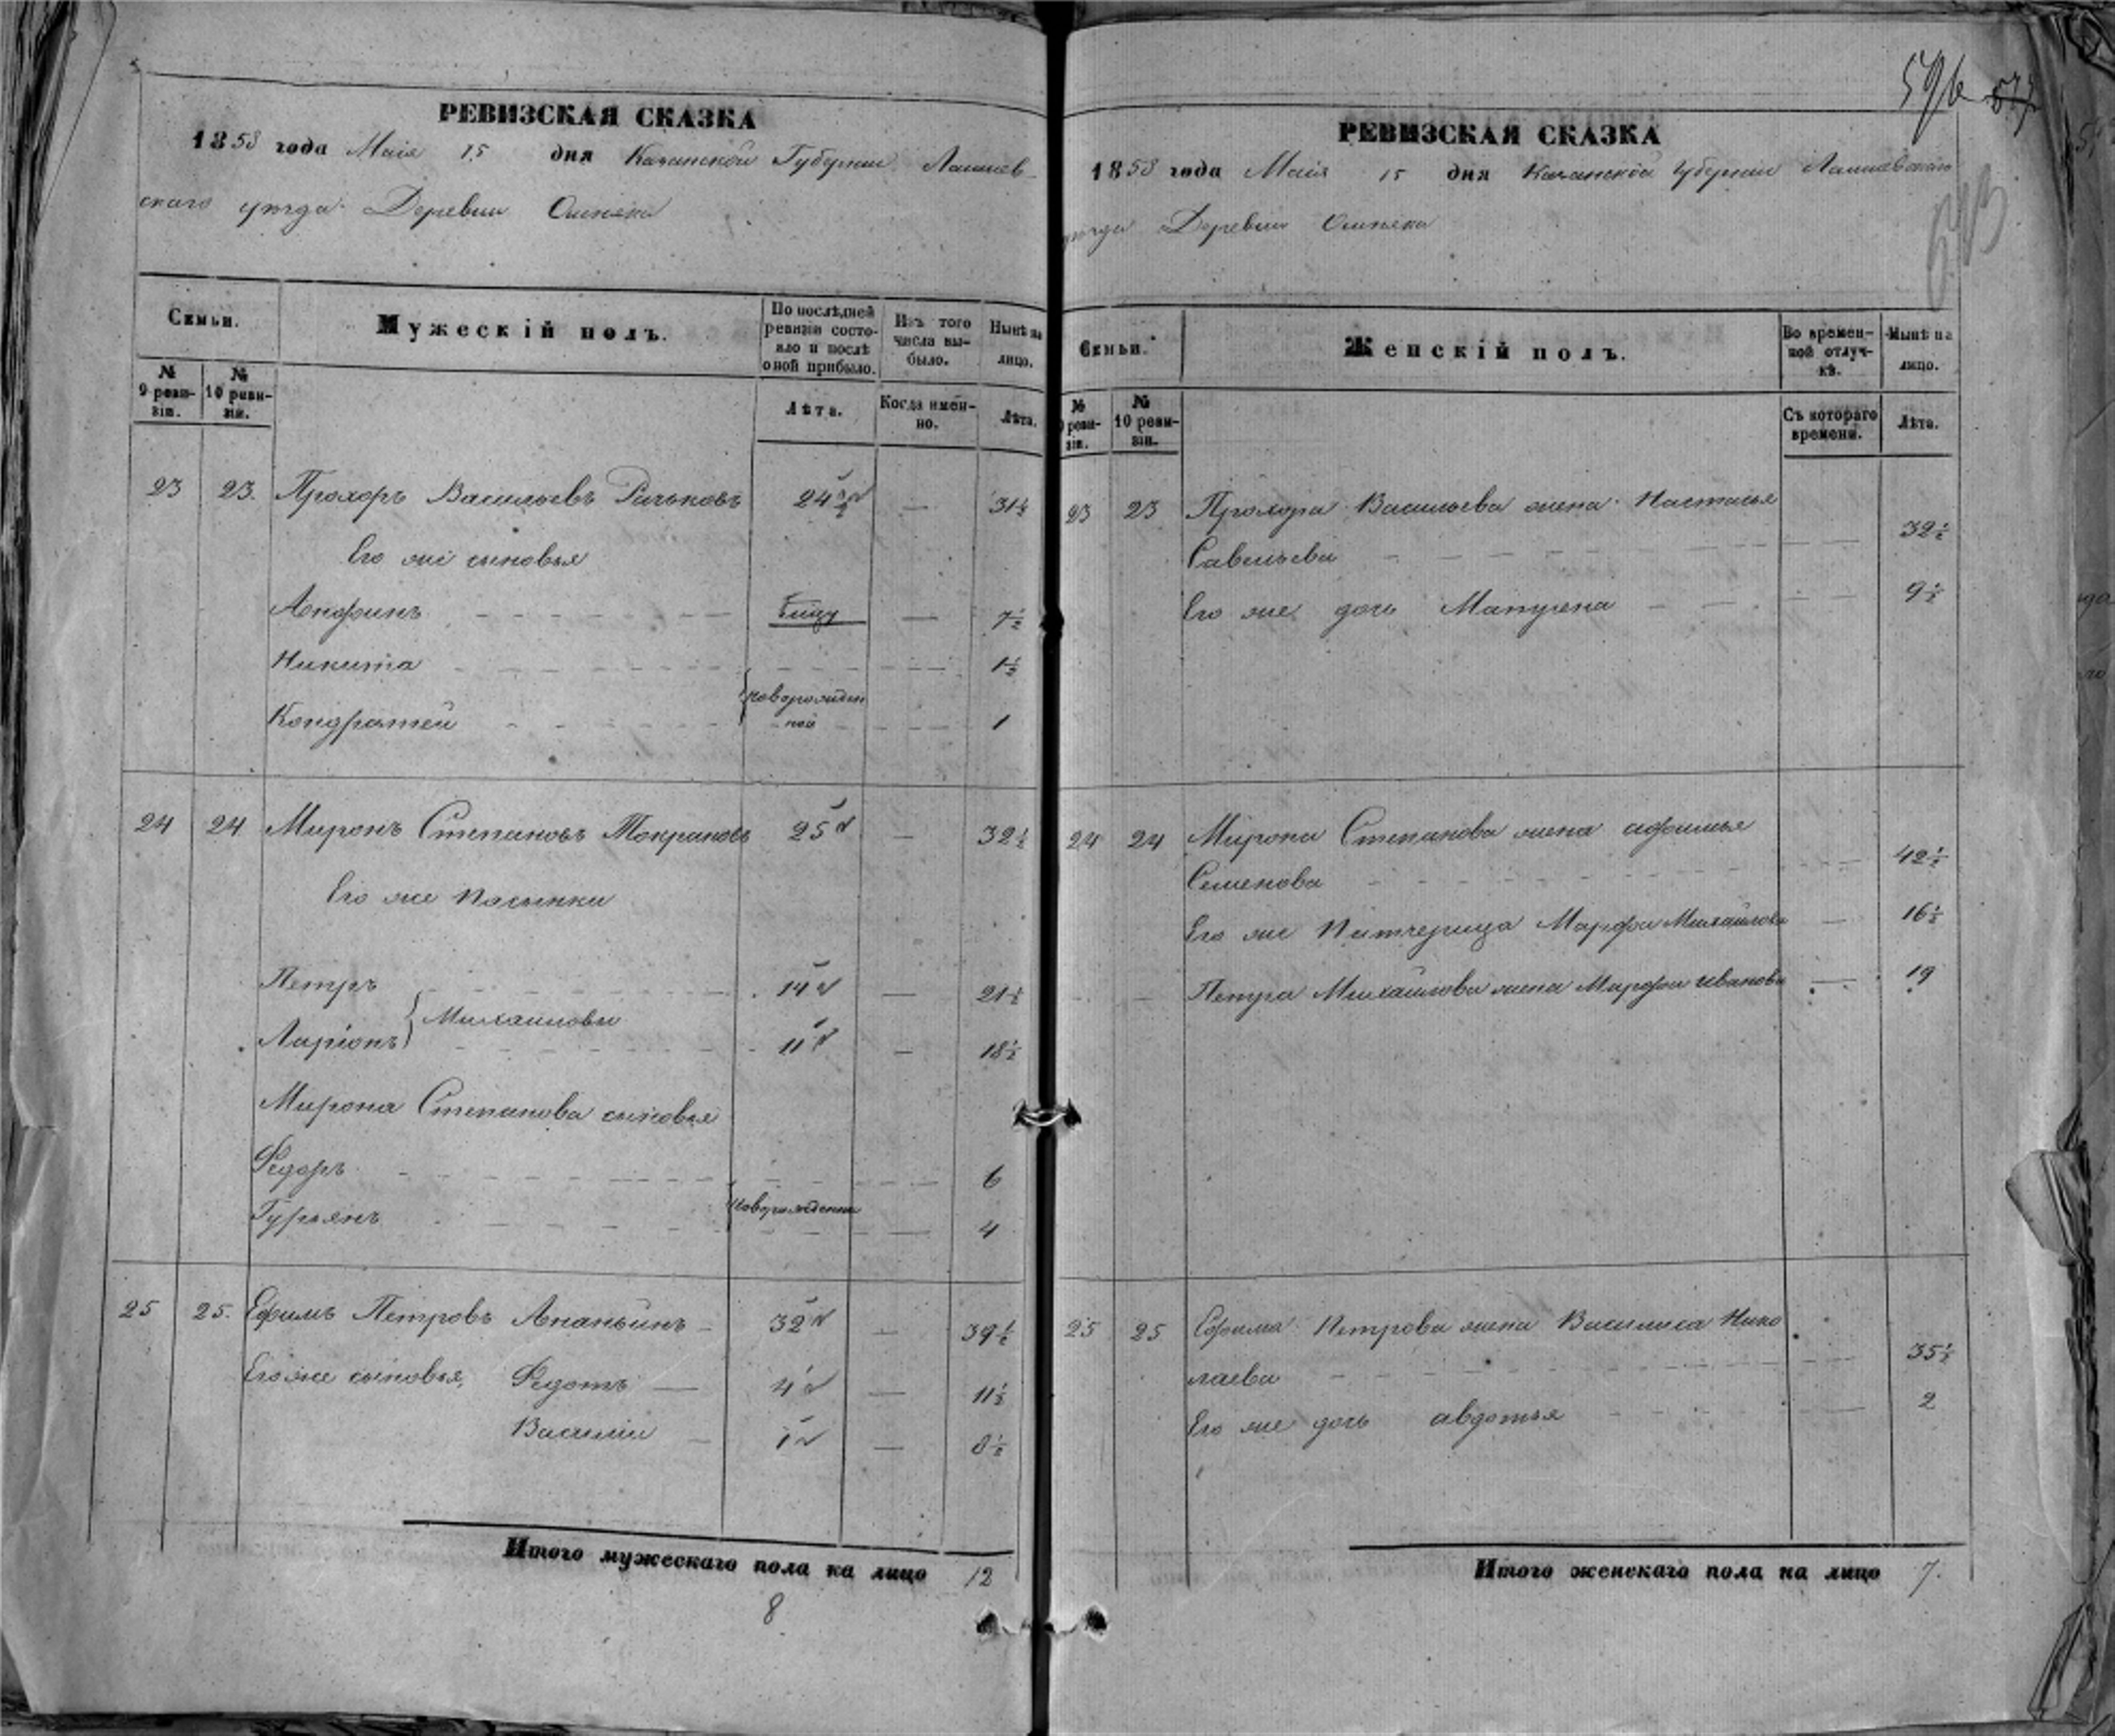 РЕВИЗСКАЯ СКАЗКА
1858 года Маія 15 дня Казанской Губерніи Лаишев-
скаго уѣзда Деревни Ошняка
Семьи.
Мужескій полъ.
По послѣдней ревизіи состояло и послѣ оной прибыло.
Изъ того числа выбыло.
Нынѣ на лицо.
№ 9 ревизіи.
№ 10 ревизіи.
Лѣта.
Когда именно.
Лѣта.
23 23. Прохоръ Васильевъ 24 — 31½
Его же сыновья
Анфинъ — 7½
Никита 1½
новорожден
Кондратей ной 1
24 24 Миронъ Степановъ Токрановъ 25 — 32½
Его же Пасынки
Петръ 14 — 21½
Михаиловы
Ларіонъ 11 — 18½
Мирона Степанова сыновья
Федоръ 6
новорожденны
Гурьянъ 4
25 25. Ефимъ Петровъ Ананьинъ 32 — 39½
Его же сыновья, Федотъ — 4 — 11½
Василіи — 1 — 8½
Итого мужескаго пола на лицо 12
8
596 577
593
РЕВИЗСКАЯ СКАЗКА
1858 года Маія 15 дня Казанской губерніи Лаишевскаго
уѣзда Деревни Ошняка
Семьи.
Женскій полъ.
Во временной отлучкѣ.
Нынѣ на лицо.
№ 9 ревизіи.
№ 10 ревизіи.
Съ котораго времени.
Лѣта.
23 23 Прохора Васильева жена Настасья
Савельева 32½
Его же дочь Матрена 9½
24 24 Мирона Степанова жена афимья
Семенова 42½
Его же Патчерица Марфа Михаилова — 16½
Петра Михаилова жена Марфа иванова — 19
25 25 Ефима Петрова жена Василиса Нико
лаева 35½
Его же дочь авдотья 2
Итого женскаго пола на лицо 7.